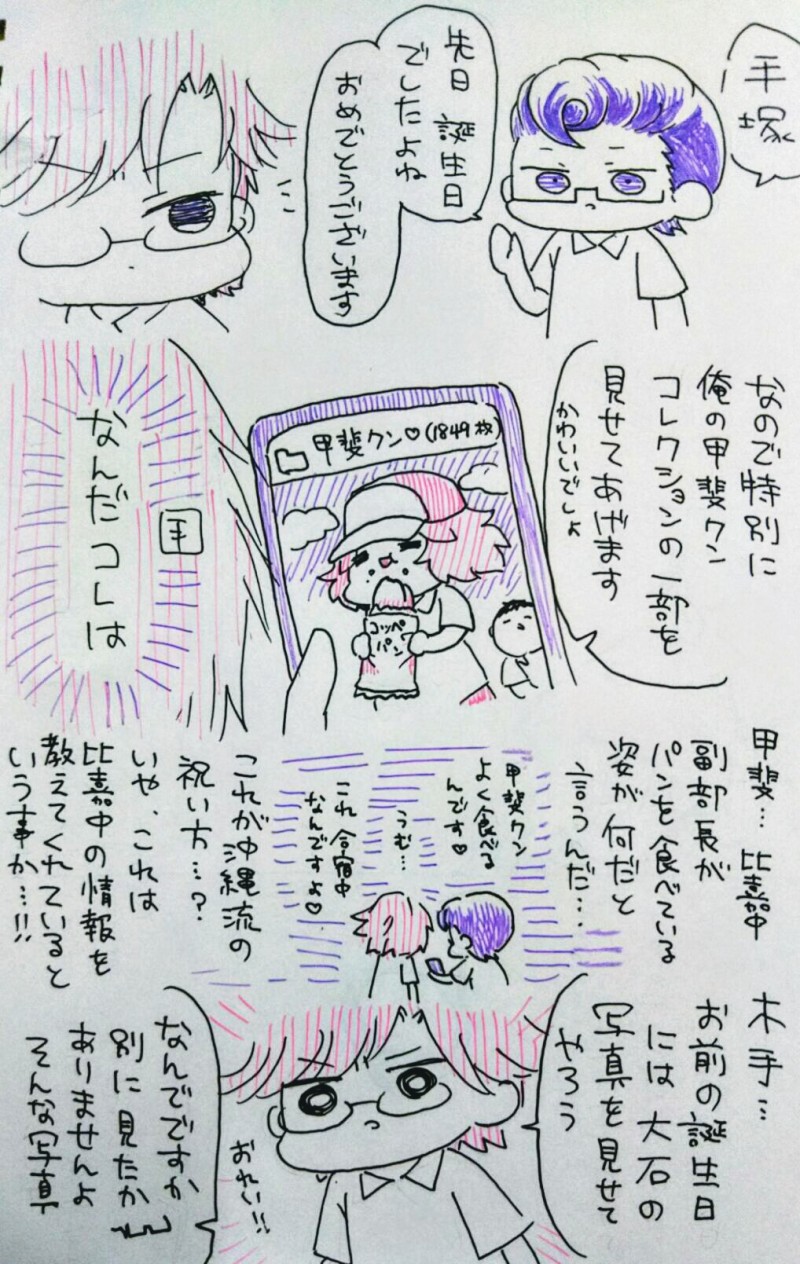 手塚
先日 誕生日
でしたよね
おめでとうございます
なので特別に
俺の甲斐クン
コレクションの一部を
見せてあげます
かわいいでしょ
甲斐クン♡(1849枚)
コッペ
パン
手
なんだコレは
甲斐… 比嘉中
副部長が
パンを食べている
姿が何だと
言うんだ…
甲斐クン
よく食べる
んです♡
うむ…
これ合宿中
なんですよ♡
これが沖縄流の
祝い方…?
いや、これは
比嘉中の情報を
教えてくれていると
いう事か…!!
木手…
お前の誕生日
には大石の
写真を見せて
やろう
おれい!!
なんでですか
別に見たか
ありませんよ
そんな写真